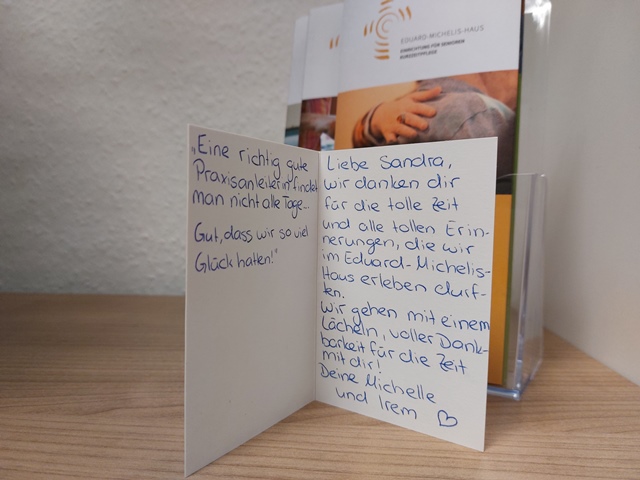 EDUARD-MICHELIS-HAUS
EINRICHTUNG FÜR SENIOREN
KURZZEITPFLEGE
„Eine richtig gute
Praxisanleiterin findet
man nicht alle Tage...
Gut, dass wir so viel
Glück hatten!"
Liebe Sandra,
wir danken dir
für die tolle Zeit
und alle tollen Erin-
nerungen, die wir
im Eduard-Michelis-
Haus erleben durf-
ten.
Wir gehen mit einem
Lächeln, voller Dank-
barkeit für die Zeit
mit dir!
Deine Michelle
und Irem